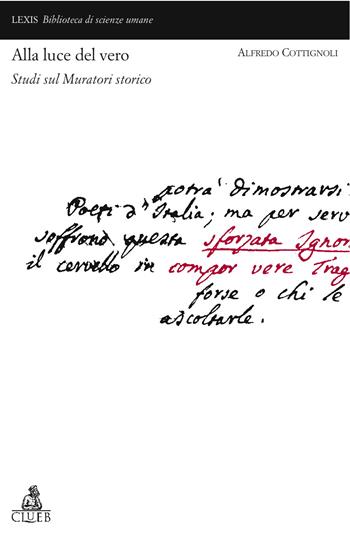 LEXIS Biblioteca di scienze umane
Alla luce del vero
ALFREDO COTTIGNOLI
Studi sul Muratori storico
potrà dimostrarsi
Poeti d'Italia; ma per serv
soffrono questa sforzata Ignor
il cervello in compor vere Trag
forse o chi le
ascoltarle.
CLUEB